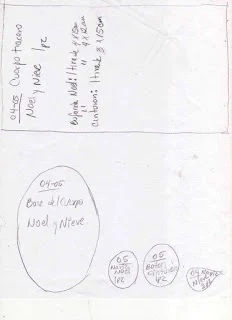 04-05 Cuerpo trasero
Noel y Nieve 1pz
Bufanda Noel: 1 tira de 4 x 15cm
" " 4 x 12cm
Cinturon: 1 tira de 3 x 15cm
04-05
Base del Cuerpo
Noel y Nieve
05
Noel
1pz
05
1pz
04
Nieve